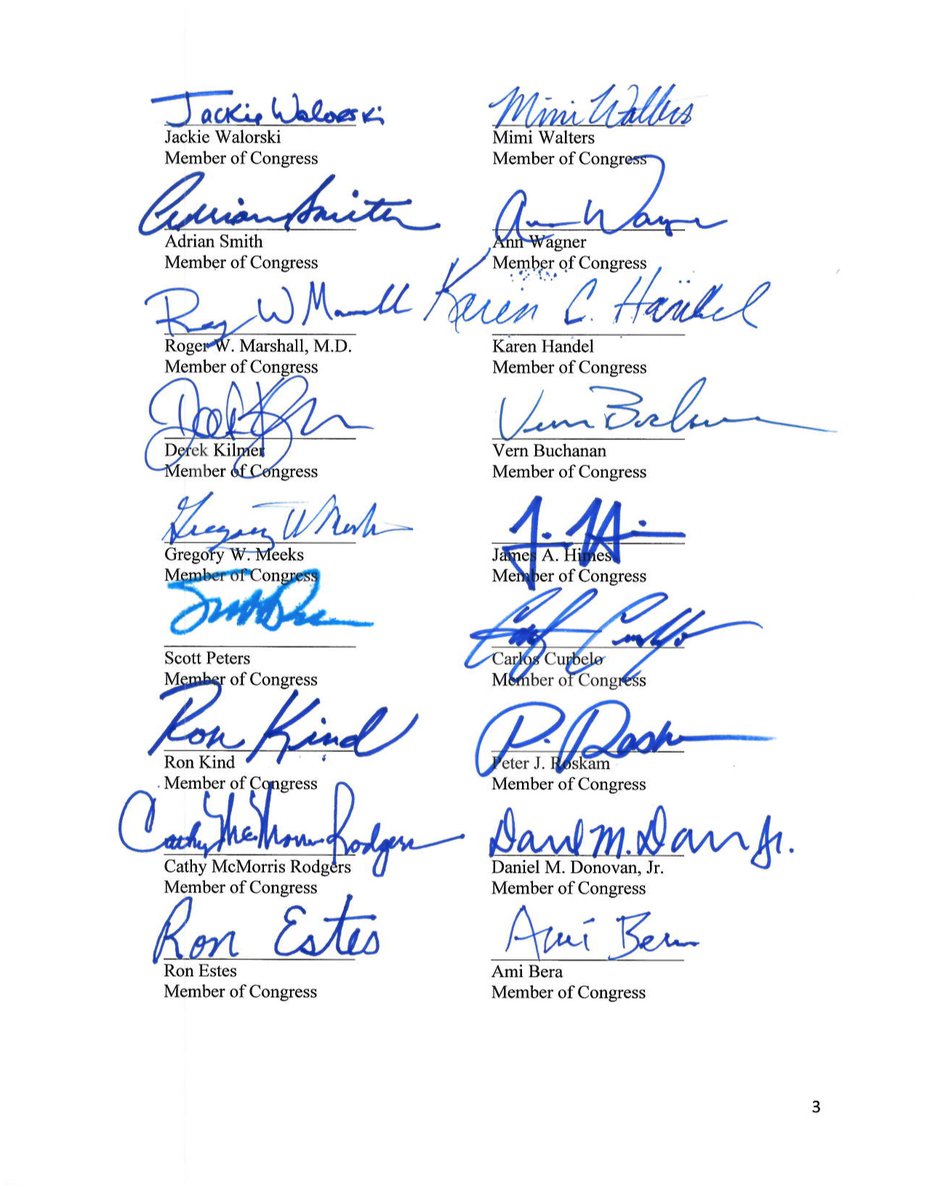 Jackie Walorski
Mimi Walters
Jackie Walorski
Mimi Walters
Member of Congress
Member of Congress
Adrian Smith
Ann Wagner
Adrian Smith
Ann Wagner
Member of Congress
Member of Congress
Karen C. Handel
Roger W. Marshall, M.D.
Karen Handel
Member of Congress
Member of Congress
Derek Kilmer
Vern Buchanan
Member of Congress
Member of Congress
Gregory W. Meeks
James A. Himes
Member of Congress
Member of Congress
Scott Peters
Carlos Curbelo
Member of Congress
Member of Congress
Ron Kind
Ron Kind
Peter J. Roskam
Member of Congress
Member of Congress
Cathy McMorris Rodgers
Cathy McMorris Rodgers
Daniel M. Donovan, Jr.
Member of Congress
Member of Congress
Ron Estes
Ami Bera
Ron Estes
Ami Bera
Member of Congress
Member of Congress
3